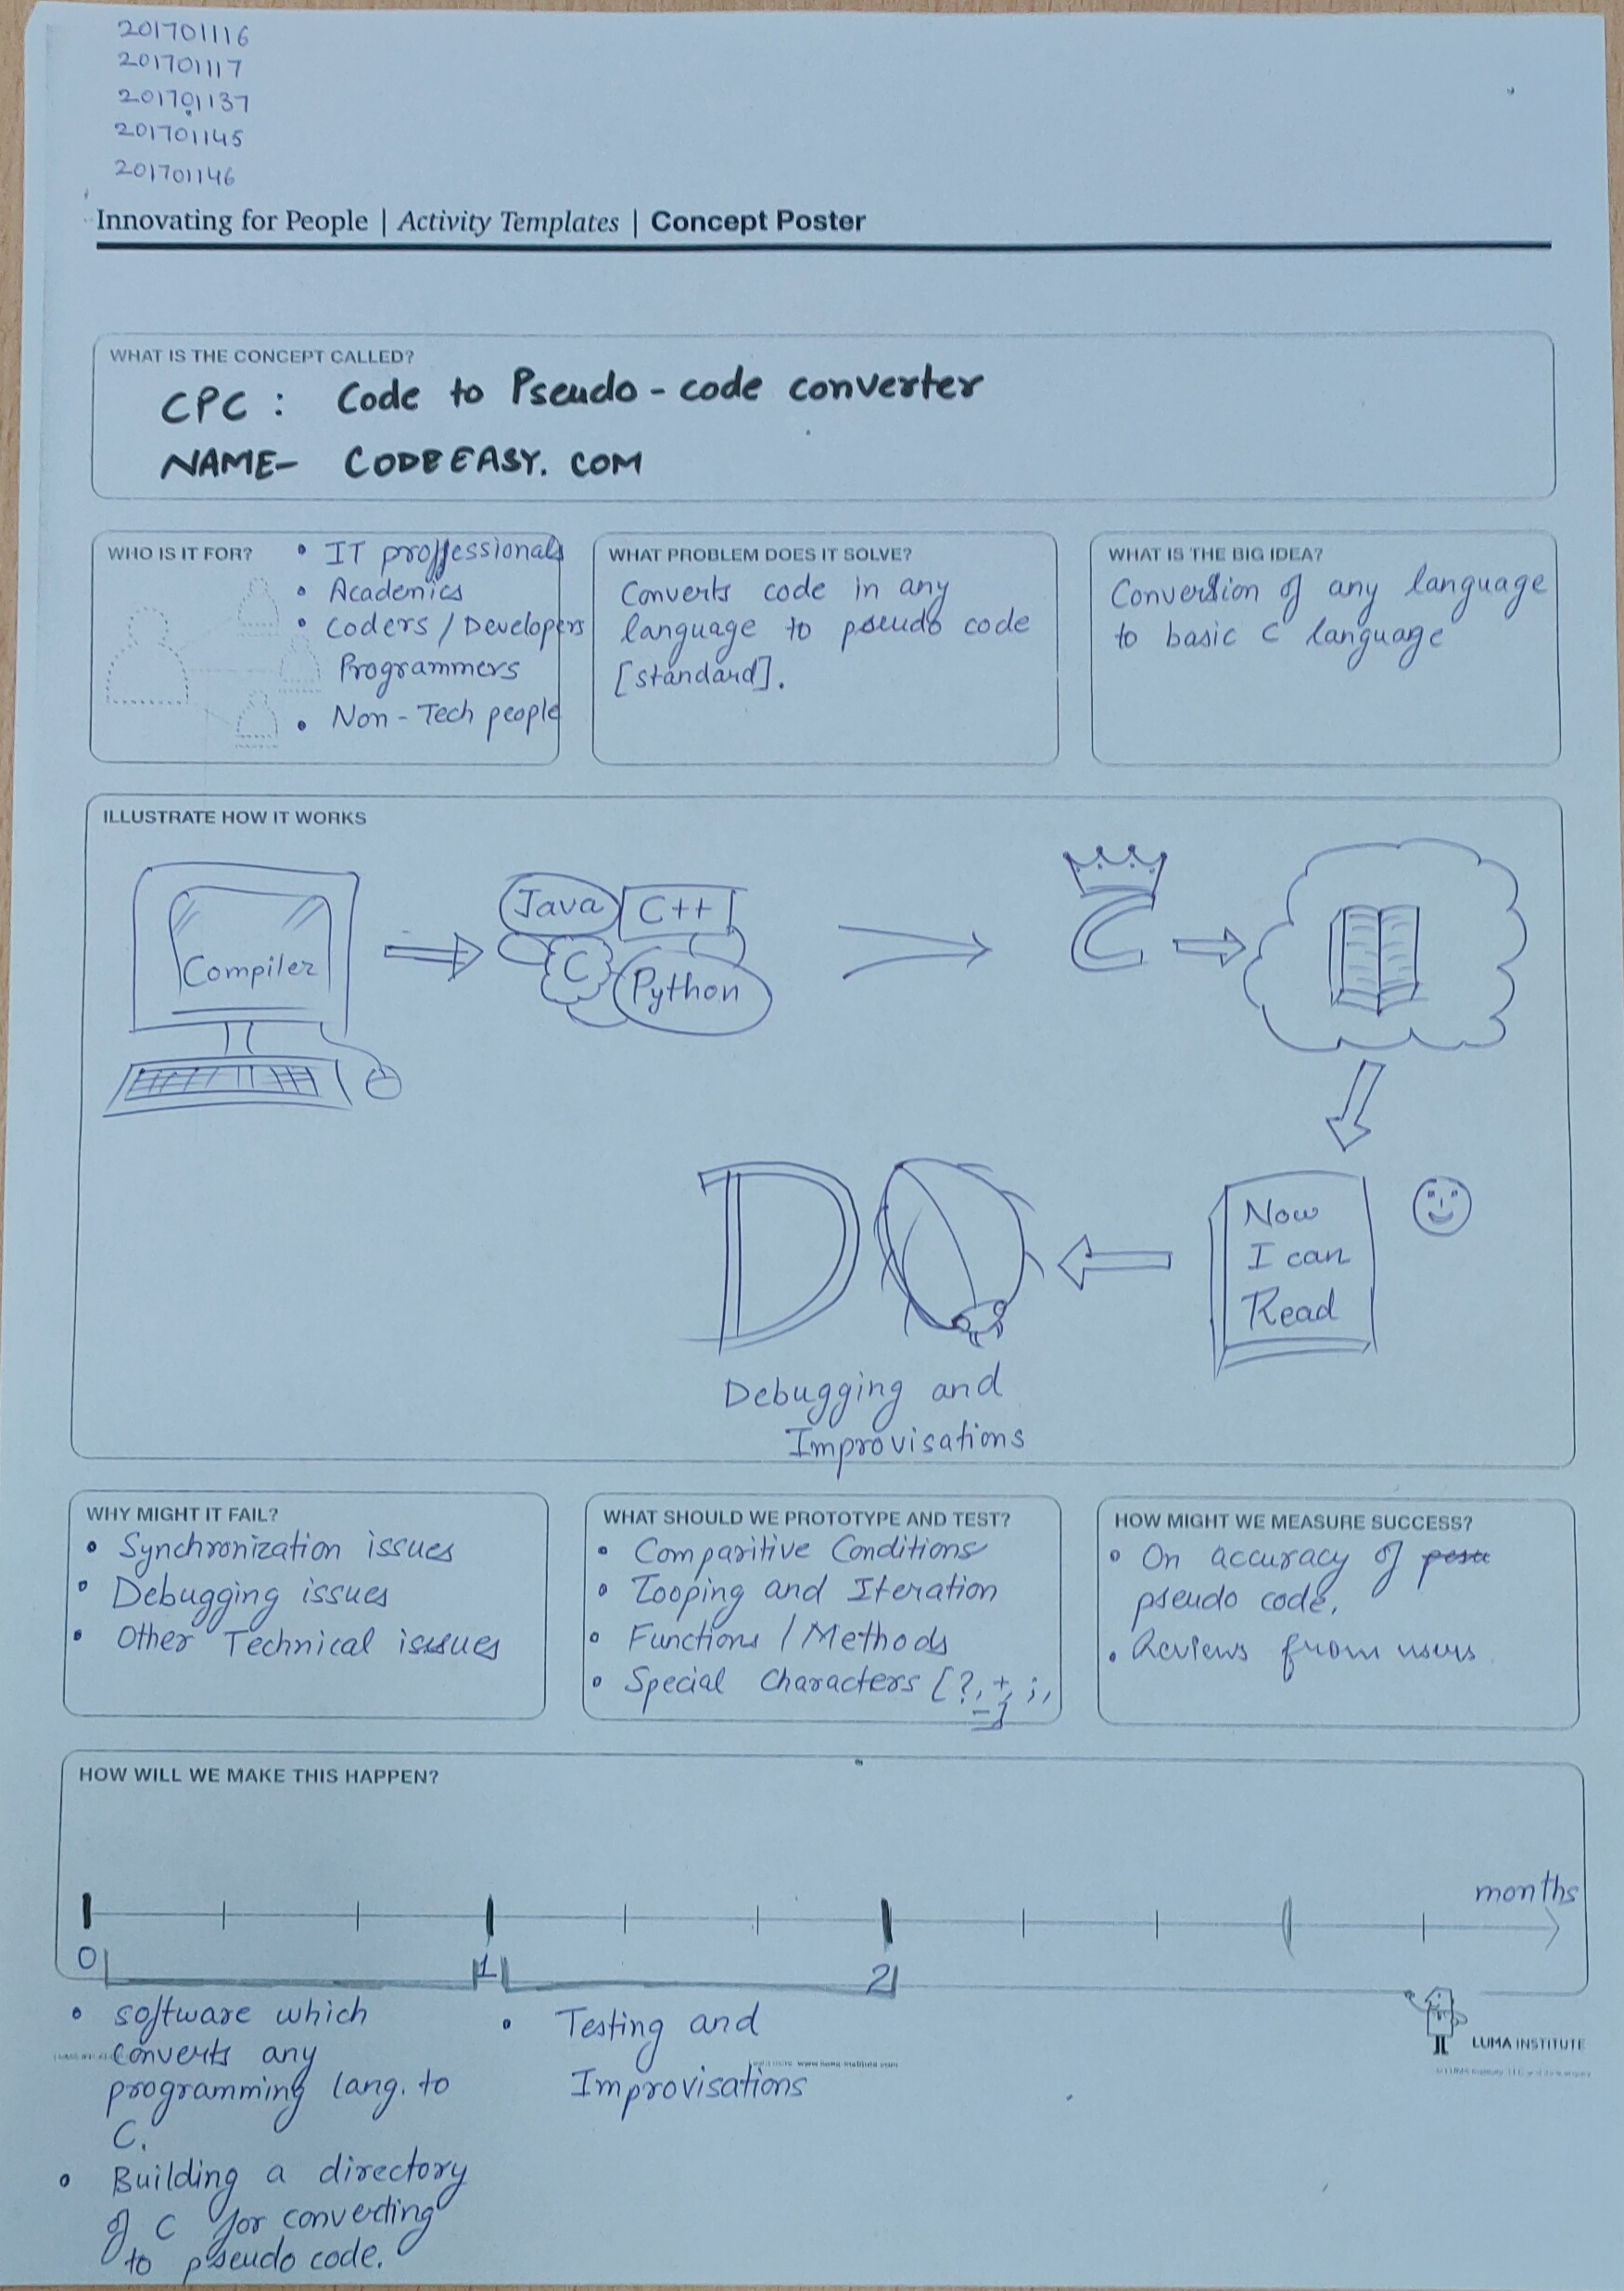 201701116
201701117
201701137
201701145
201701146
Innovating for People | Activity Templates | Concept Poster
WHAT IS THE CONCEPT CALLED?
CPC : Code to Pseudo-code converter
NAME- CODEEASY.COM
WHO IS IT FOR?
• IT proffessionals
• Academics
• Coders / Developers
Programmers
• Non-Tech people
WHAT PROBLEM DOES IT SOLVE?
Converts code in any
language to pseudo code
[standard].
WHAT IS THE BIG IDEA?
Conversion of any language
to basic C language
ILLUSTRATE HOW IT WORKS
Compiler
Java
C++
C
Python
C
Now
I can
Read
D
Debugging and
Improvisations
WHY MIGHT IT FAIL?
• Synchronization issues
• Debugging issues
• Other Technical issues
WHAT SHOULD WE PROTOTYPE AND TEST?
• Comparitive Conditions
• Looping and Iteration
• Functions / Methods
• Special Characters [?, +, ;,
_]
HOW MIGHT WE MEASURE SUCCESS?
• On accuracy of
pseudo code.
• Reviews from users
HOW WILL WE MAKE THIS HAPPEN?
months
0
1
2
• software which
converts any
programming lang. to
C.
• Building a directory
of C for converting
to pseudo code.
• Testing and
Improvisations
LUMA INSTITUTE